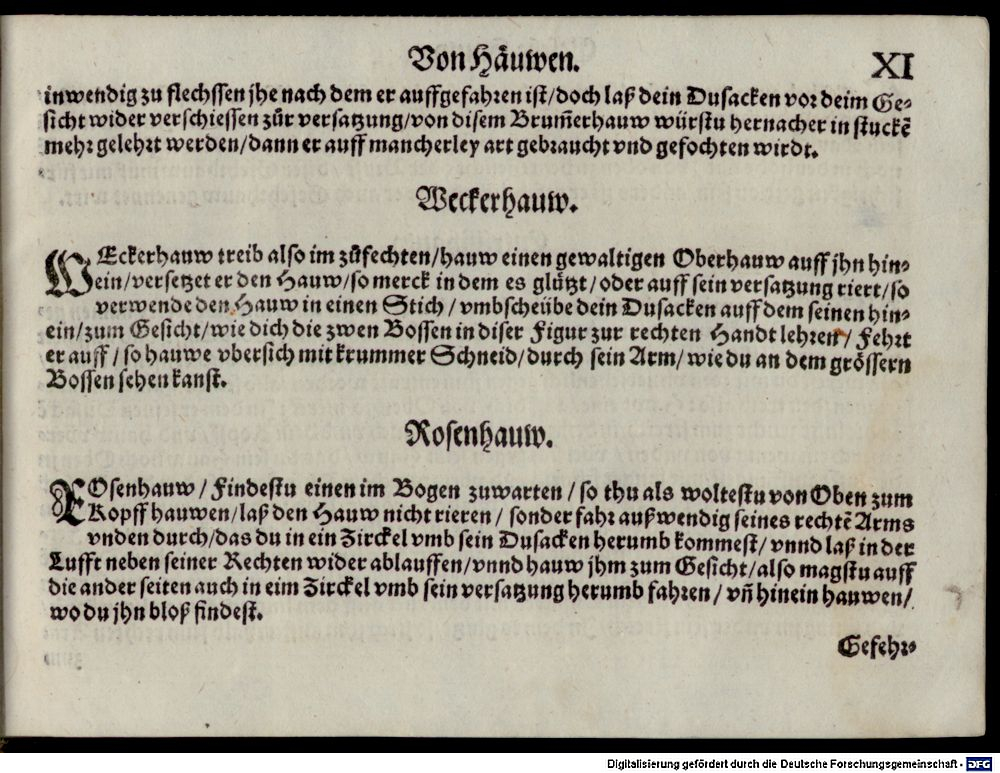 Von Häuwen.
XI
inwendig zu flechssen jhe nach dem er auffgefahren ist/doch laß dein Dusacken vor deim Ge-
sicht wider verschiessen zůr versatzung/von disem Brum̃erhauw würstu hernacher in stuckẽ
mehr gelehrt werden/dann er auff mancherley art gebraucht vnd gefochten wirdt.
Weckerhauw.
WEckerhauw treib also im zůfechten/hauw einen gewaltigen Oberhauw auff jhn hin-
ein/versetzet er den Hauw/so merck in dem es glützt/oder auff sein versatzung riert/so
verwende den Hauw in einen Stich/vmbscheübe dein Dusacken auff dem seinen hin-
ein/zum Gesicht/wie dich die zwen Bossen in diser Figur zur rechten Handt lehren/ Fehrt
er auff/so hauwe vbersich mit krummer Schneid/durch sein Arm/wie du an dem grössern
Bossen sehen kanst.
Rosenhauw.
ROsenhauw/Findestu einen im Bogen zuwarten/so thu als woltestu von Oben zum
Kopff hauwen/laß den Hauw nicht rieren/sonder fahr außwendig seines rechtẽ Arms
vnden durch/das du in ein Zirckel vmb sein Dusacken herumb kommest/vnnd laß in der
Lufft neben seiner Rechten wider ablauffen/vnnd hauw jhm zum Gesicht/also magstu auff
die ander seiten auch in eim Zirckel vmb sein versatzung herumb fahren/vñ hinein hauwen/
wo du jhn bloß findest.
Gefehr-
Digitalisierung gefördert durch die Deutsche Forschungsgemeinschaft - DFG